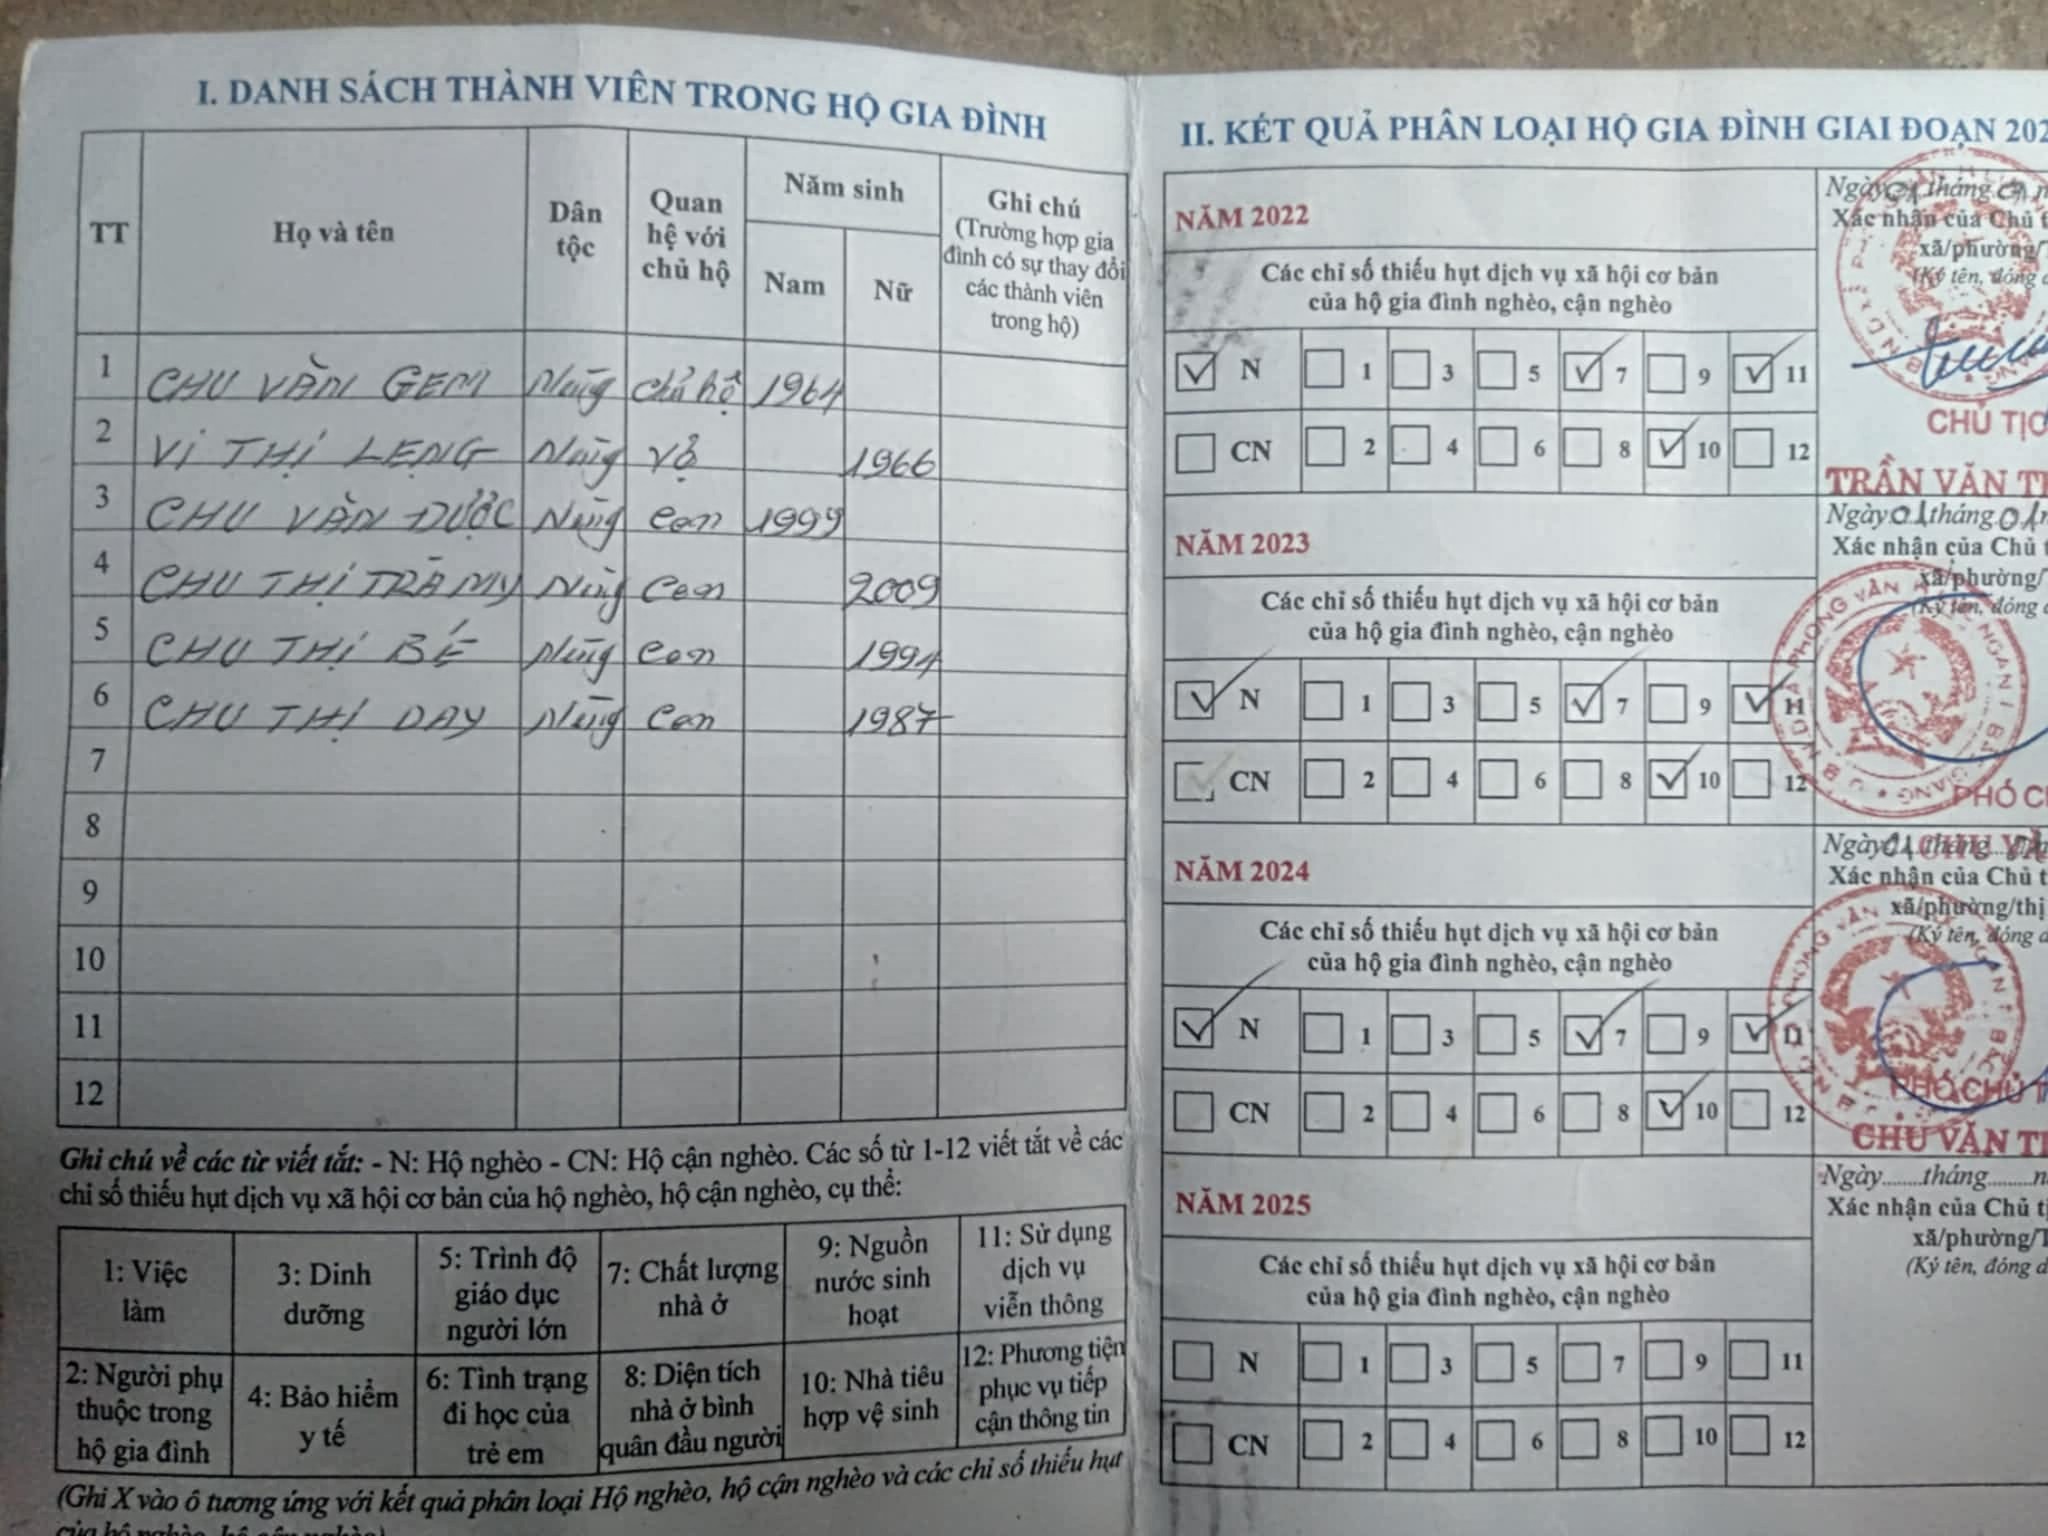 I. DANH SÁCH THÀNH VIÊN TRONG HỘ GIA ĐÌNH
TT
Họ và tên
Dân tộc
Quan hệ với chủ hộ
Năm sinh
Nam
Nữ
Ghi chú
(Trường hợp gia đình có sự thay đổi các thành viên trong hộ)
1 CHU VĂN GEM Nùng Chủ hộ 1964
2 VI THỊ LẸNG Nùng Vợ 1966
3 CHU VĂN ĐƯỢC Nùng Con 1999
4 CHU THỊ TRÀ MY Nùng Con 2009
5 CHU THỊ BÉ Nùng Con 1994
6 CHU THỊ DAY Nùng Con 1987
7
8
9
10
11
12
Ghi chú về các từ viết tắt: - N: Hộ nghèo - CN: Hộ cận nghèo. Các số từ 1-12 viết tắt về các
chỉ số thiếu hụt dịch vụ xã hội cơ bản của hộ nghèo, hộ cận nghèo, cụ thể:
1: Việc làm
3: Dinh dưỡng
5: Trình độ giáo dục người lớn
7: Chất lượng nhà ở
9: Nguồn nước sinh hoạt
11: Sử dụng dịch vụ viễn thông
2: Người phụ thuộc trong hộ gia đình
4: Bảo hiểm y tế
6: Tình trạng đi học của trẻ em
8: Diện tích nhà ở bình quân đầu người
10: Nhà tiêu hợp vệ sinh
12: Phương tiện phục vụ tiếp cận thông tin
(Ghi X vào ô tương ứng với kết quả phân loại Hộ nghèo, hộ cận nghèo và các chỉ số thiếu hụt
II. KẾT QUẢ PHÂN LOẠI HỘ GIA ĐÌNH GIAI ĐOẠN 202
NĂM 2022
Các chỉ số thiếu hụt dịch vụ xã hội cơ bản
của hộ gia đình nghèo, cận nghèo
N 1 3 5 7 9 11
CN 2 4 6 8 10 12
Ngày 01 tháng 01 n
Xác nhận của Chủ t
xã/phường/
(Ký tên, đóng d
CHỦ TỊC
TRẦN VĂN T
NĂM 2023
Các chỉ số thiếu hụt dịch vụ xã hội cơ bản
của hộ gia đình nghèo, cận nghèo
N 1 3 5 7 9 11
CN 2 4 6 8 10 12
Ngày 01 tháng 01 n
Xác nhận của Chủ t
xã/phường/
(Ký tên, đóng d
PHÓ C
CHU VĂ
NĂM 2024
Các chỉ số thiếu hụt dịch vụ xã hội cơ bản
của hộ gia đình nghèo, cận nghèo
N 1 3 5 7 9 11
CN 2 4 6 8 10 12
Ngày 01 tháng
Xác nhận của Chủ t
xã/phường/thị
(Ký tên, đóng d
PHÓ CHỦ T
CHU VĂN T
NĂM 2025
Các chỉ số thiếu hụt dịch vụ xã hội cơ bản
của hộ gia đình nghèo, cận nghèo
N 1 3 5 7 9 11
CN 2 4 6 8 10 12
Ngày........tháng.........n
Xác nhận của Chủ t
xã/phường/T
(Ký tên, đóng d